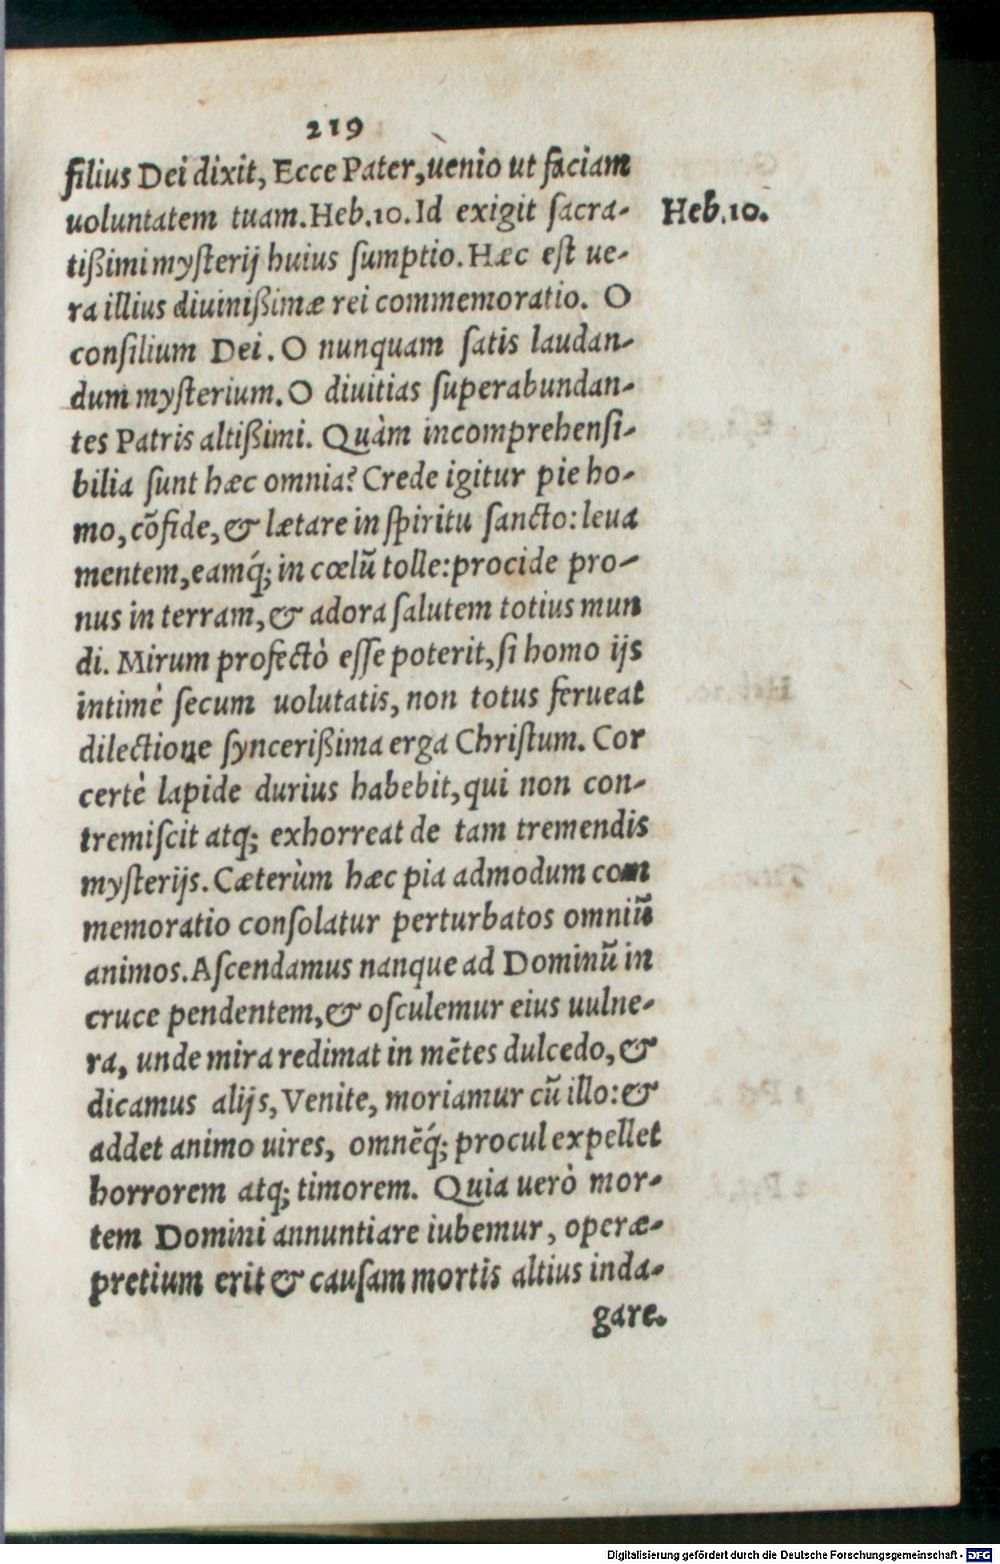 219
filius Dei dixit, Ecce Pater, uenio ut faciam
uoluntatem tuam. Heb.10. Id exigit ſacra-
Heb.10.
tißimi myſterij huius ſumptio. Hæc eſt ue-
ra illius diuinißimæ rei commemoratio. O
conſilium Dei. O nunquam ſatis laudan-
dum myſterium. O diuitias ſuperabundan-
tes Patris altißimi. Quàm incomprehenſi-
bilia ſunt hæc omnia? Crede igitur pie ho-
mo, cõfide, & lætare in ſpiritu ſancto: leua
mentem, eamq́; in cœlũ tolle: procide pro-
nus in terram, & adora ſalutem totius mun
di. Mirum profectò eſſe poterit, ſi homo ijs
intimè ſecum uolutatis, non totus ferueat
dilectione ſyncerißima erga Chriſtum. Cor
certè lapide durius habebit, qui non con-
tremiſcit atq; exhorreat de tam tremendis
myſterijs. Cæterùm hæc pia admodum com
memoratio conſolatur perturbatos omniũ
animos. Aſcendamus nanque ad Dominũ in
cruce pendentem, & oſculemur eius uulne-
ra, unde mira redimat in mẽtes dulcedo, &
dicamus alijs, Venite, moriamur cũ illo: &
addet animo uires, omnẽq́; procul expellet
horrorem atq; timorem. Quia uerò mor-
tem Domini annuntiare iubemur, operæ-
pretium erit & cauſam mortis altius inda-
gare.
Digitalisierung gefördert durch die Deutsche Forschungsgemeinschaft - DFG